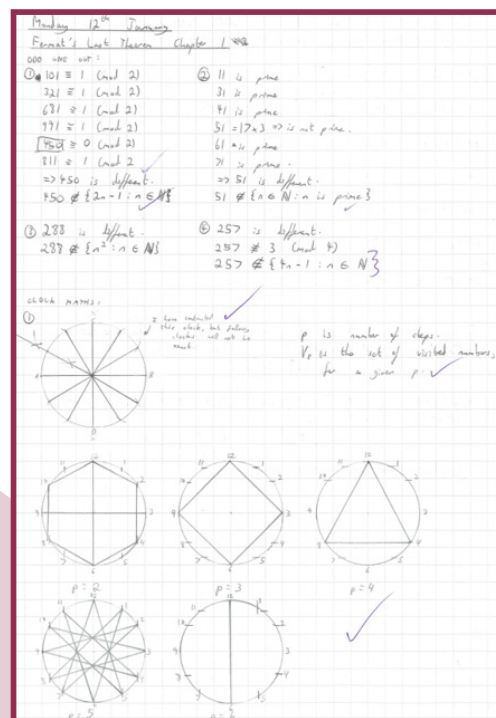 Monday 12th January
Fermat's Last Theorem Chapter 1
ODD ONE OUT:
① 101 ≡ 1 (mod 2)
321 ≡ 1 (mod 2)
681 ≡ 1 (mod 2)
991 ≡ 1 (mod 2)
450 ≡ 0 (mod 2)
811 ≡ 1 (mod 2
=> 450 is different.
450 ∉ {2n-1 : n ∈ N}
② 11 is prime
31 is prime
41 is prime
51 = 17×3 => is not prime.
61 is prime
71 is prime.
=> 51 is different.
51 ∉ {n ∈ N : n is prime}
③ 288 is different.
288 ∉ {n² : n ∈ N}
④ 257 is different.
257 ≢ 3 (mod 4)
257 ∉ {4n-1 : n ∈ N}
CLOCK MATHS:
①
I have constructed
this clock, but following
clocks will not be
exact.
p is number of steps.
Vp is the set of visited numbers,
for a given p.
12 1 2 3 4 6 7 8 9 11
p=2
12 1 2 3 4 6 7 8 9 11
p=3
12 1 2 3 4 6 7 8 9 11
p=4
p=5